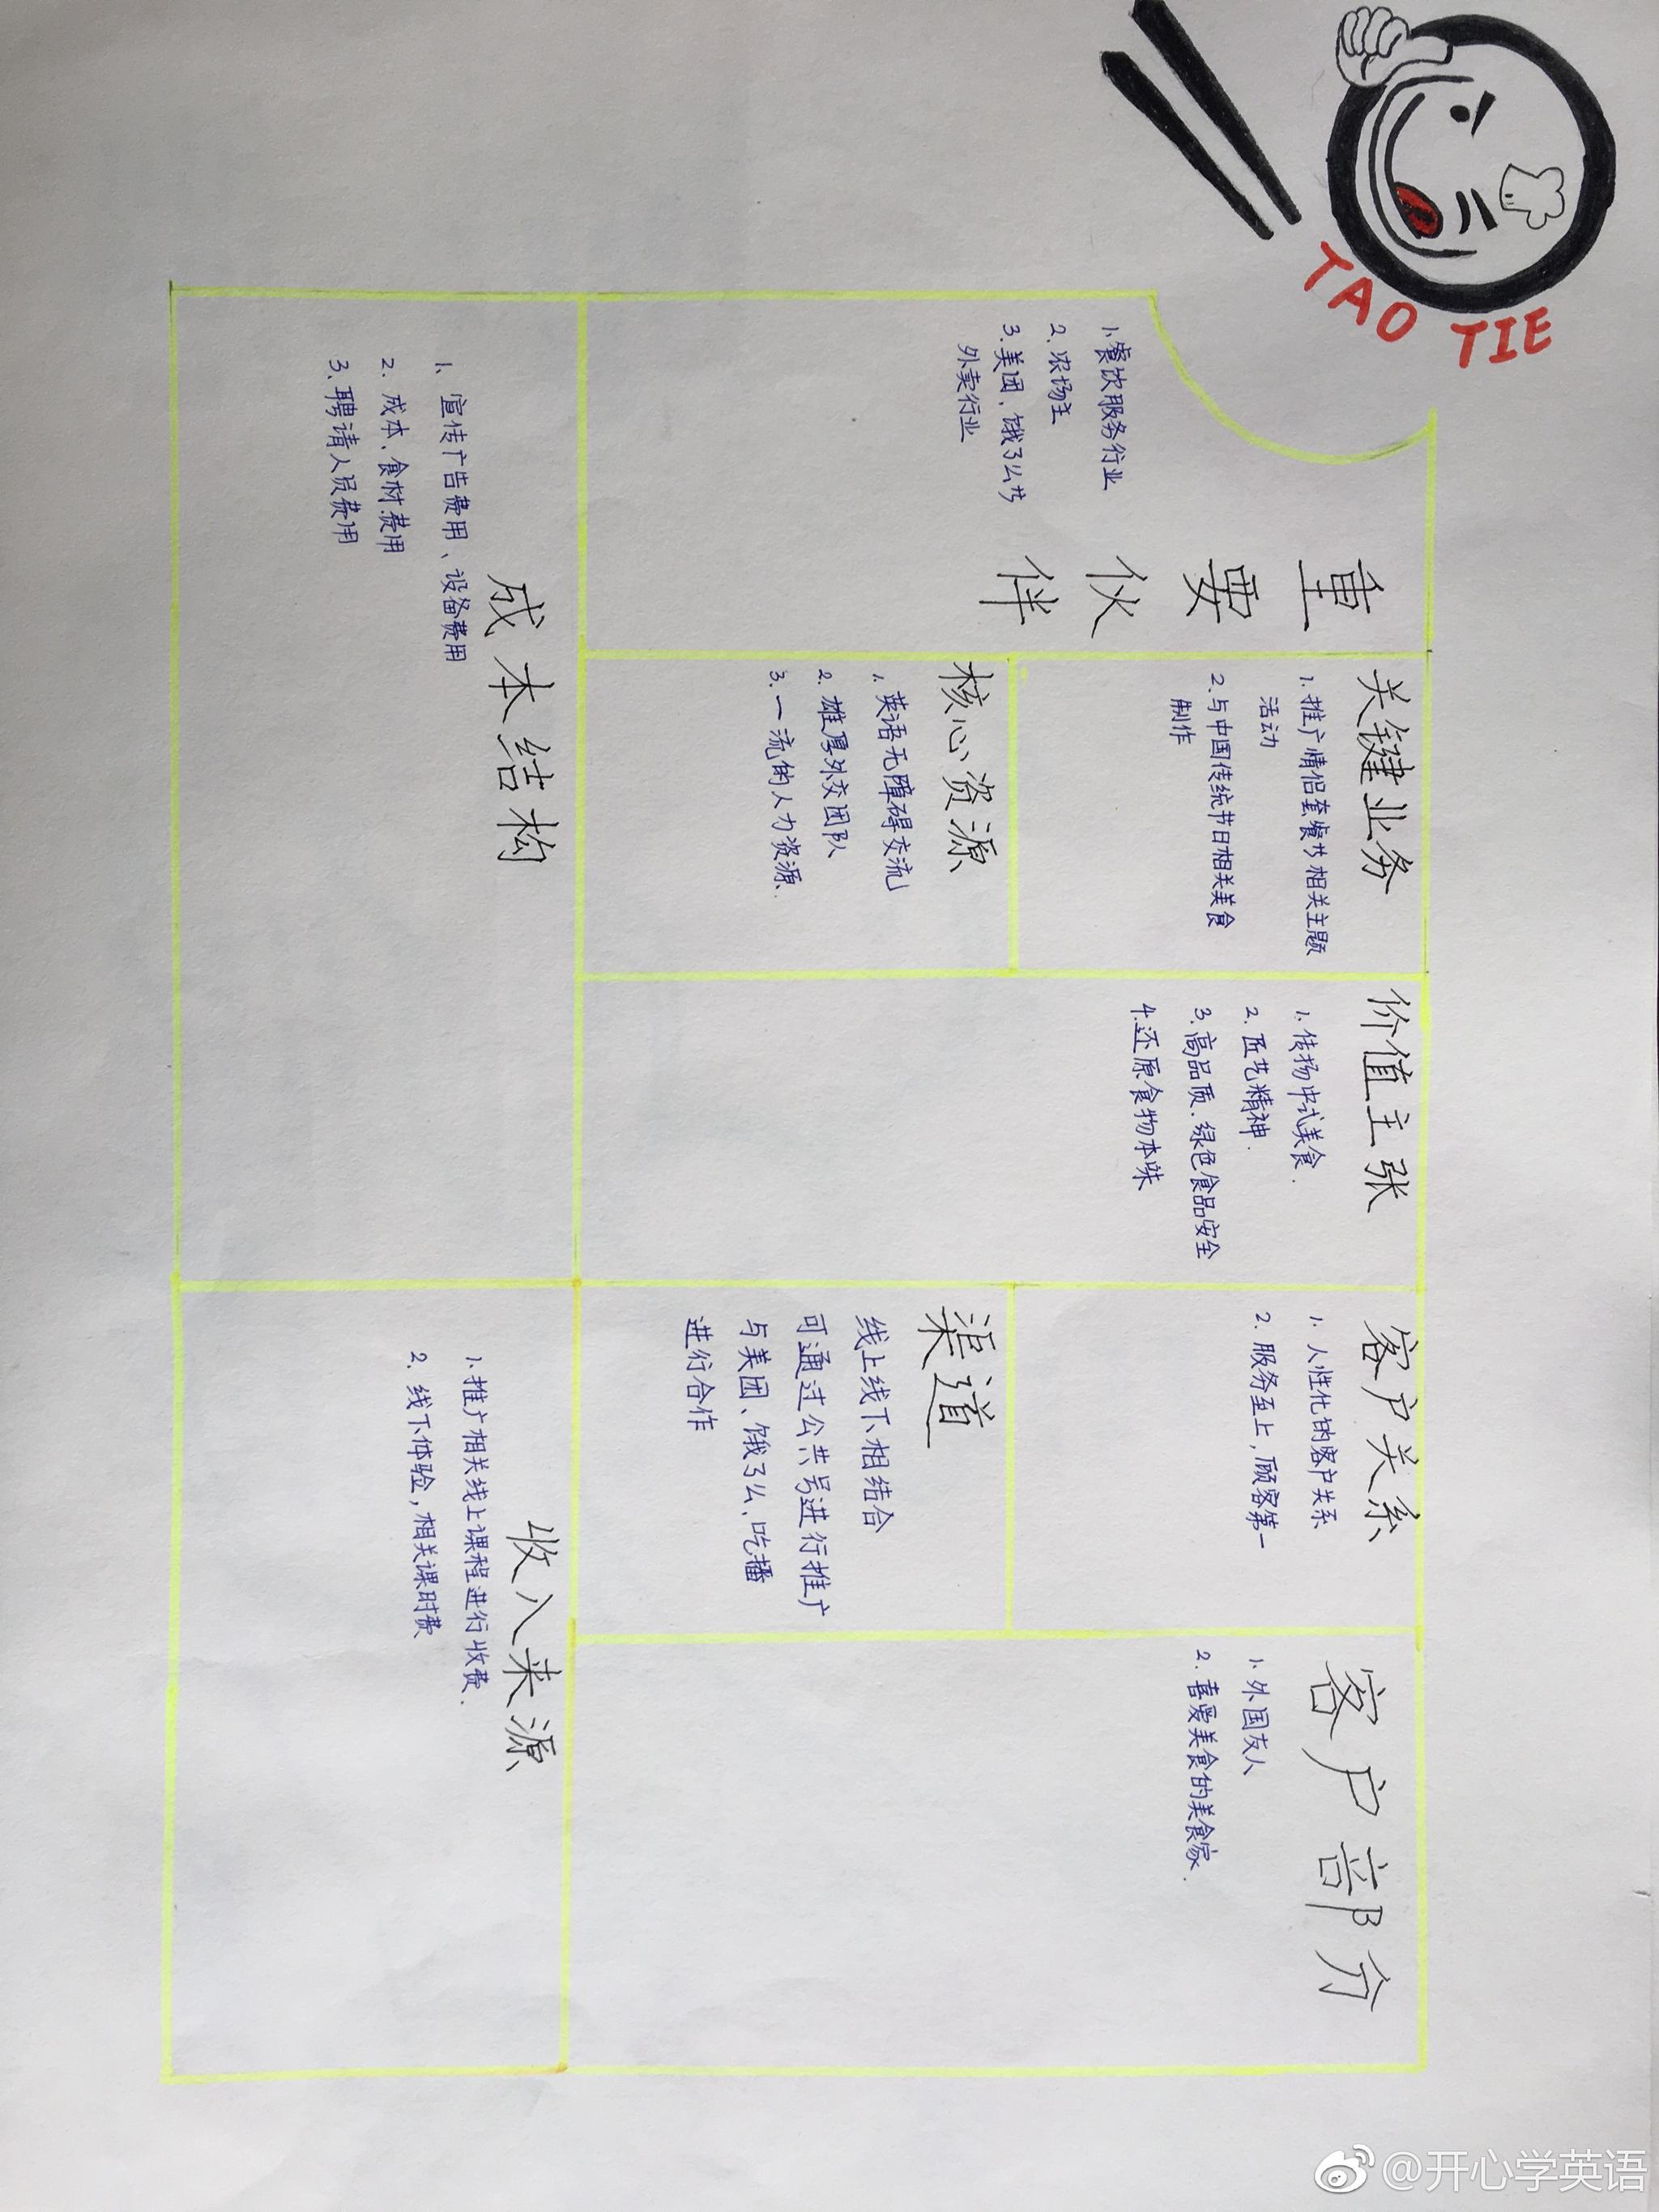 TAO TIE
重要伙伴
1.餐饮服务行业
2.农场主
3.美团、饿了么等
外卖行业
关键业务
1.推广情侣套餐等相关主题
活动
2.与中国传统节日相关美食
制作
核心资源
1.英语无障碍交流
2.雄厚外交团队
3.一流的人力资源.
价值主张
1.传扬中式美食.
2.匠艺精神.
3.高品质.绿色食品安全
4.还原食物本味
客户关系
1.人性化的客户关系
2.服务至上,顾客第一
渠道
线上线下相结合
可通过公共号进行推广
与美团、饿了么、吃播
进行合作
客户部分
1.外国友人
2.喜爱美食的美食家.
成本结构
1、宣传广告费用、设备费用
2.成本、食材费用
3、聘请人员费用
收入来源
1.推广相关线上课程进行收费.
2.线下体验,相关课时费
@开心学英语